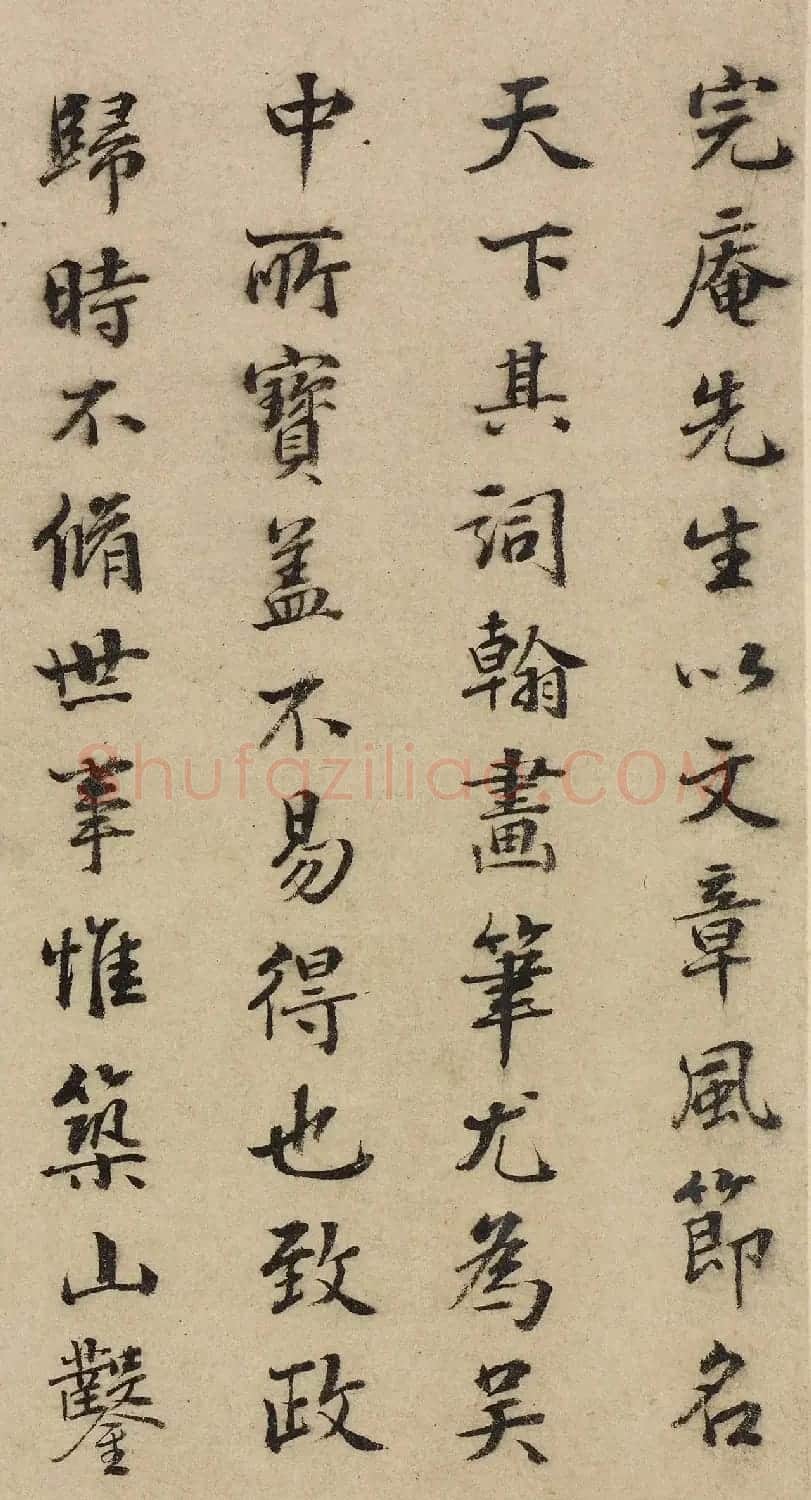 完庵先生以文章風節名
天下其詞翰畫筆尤為吴
中所寶盖不易得也致政
歸時不脩世事惟築山鑿
Shufaziliao.COM